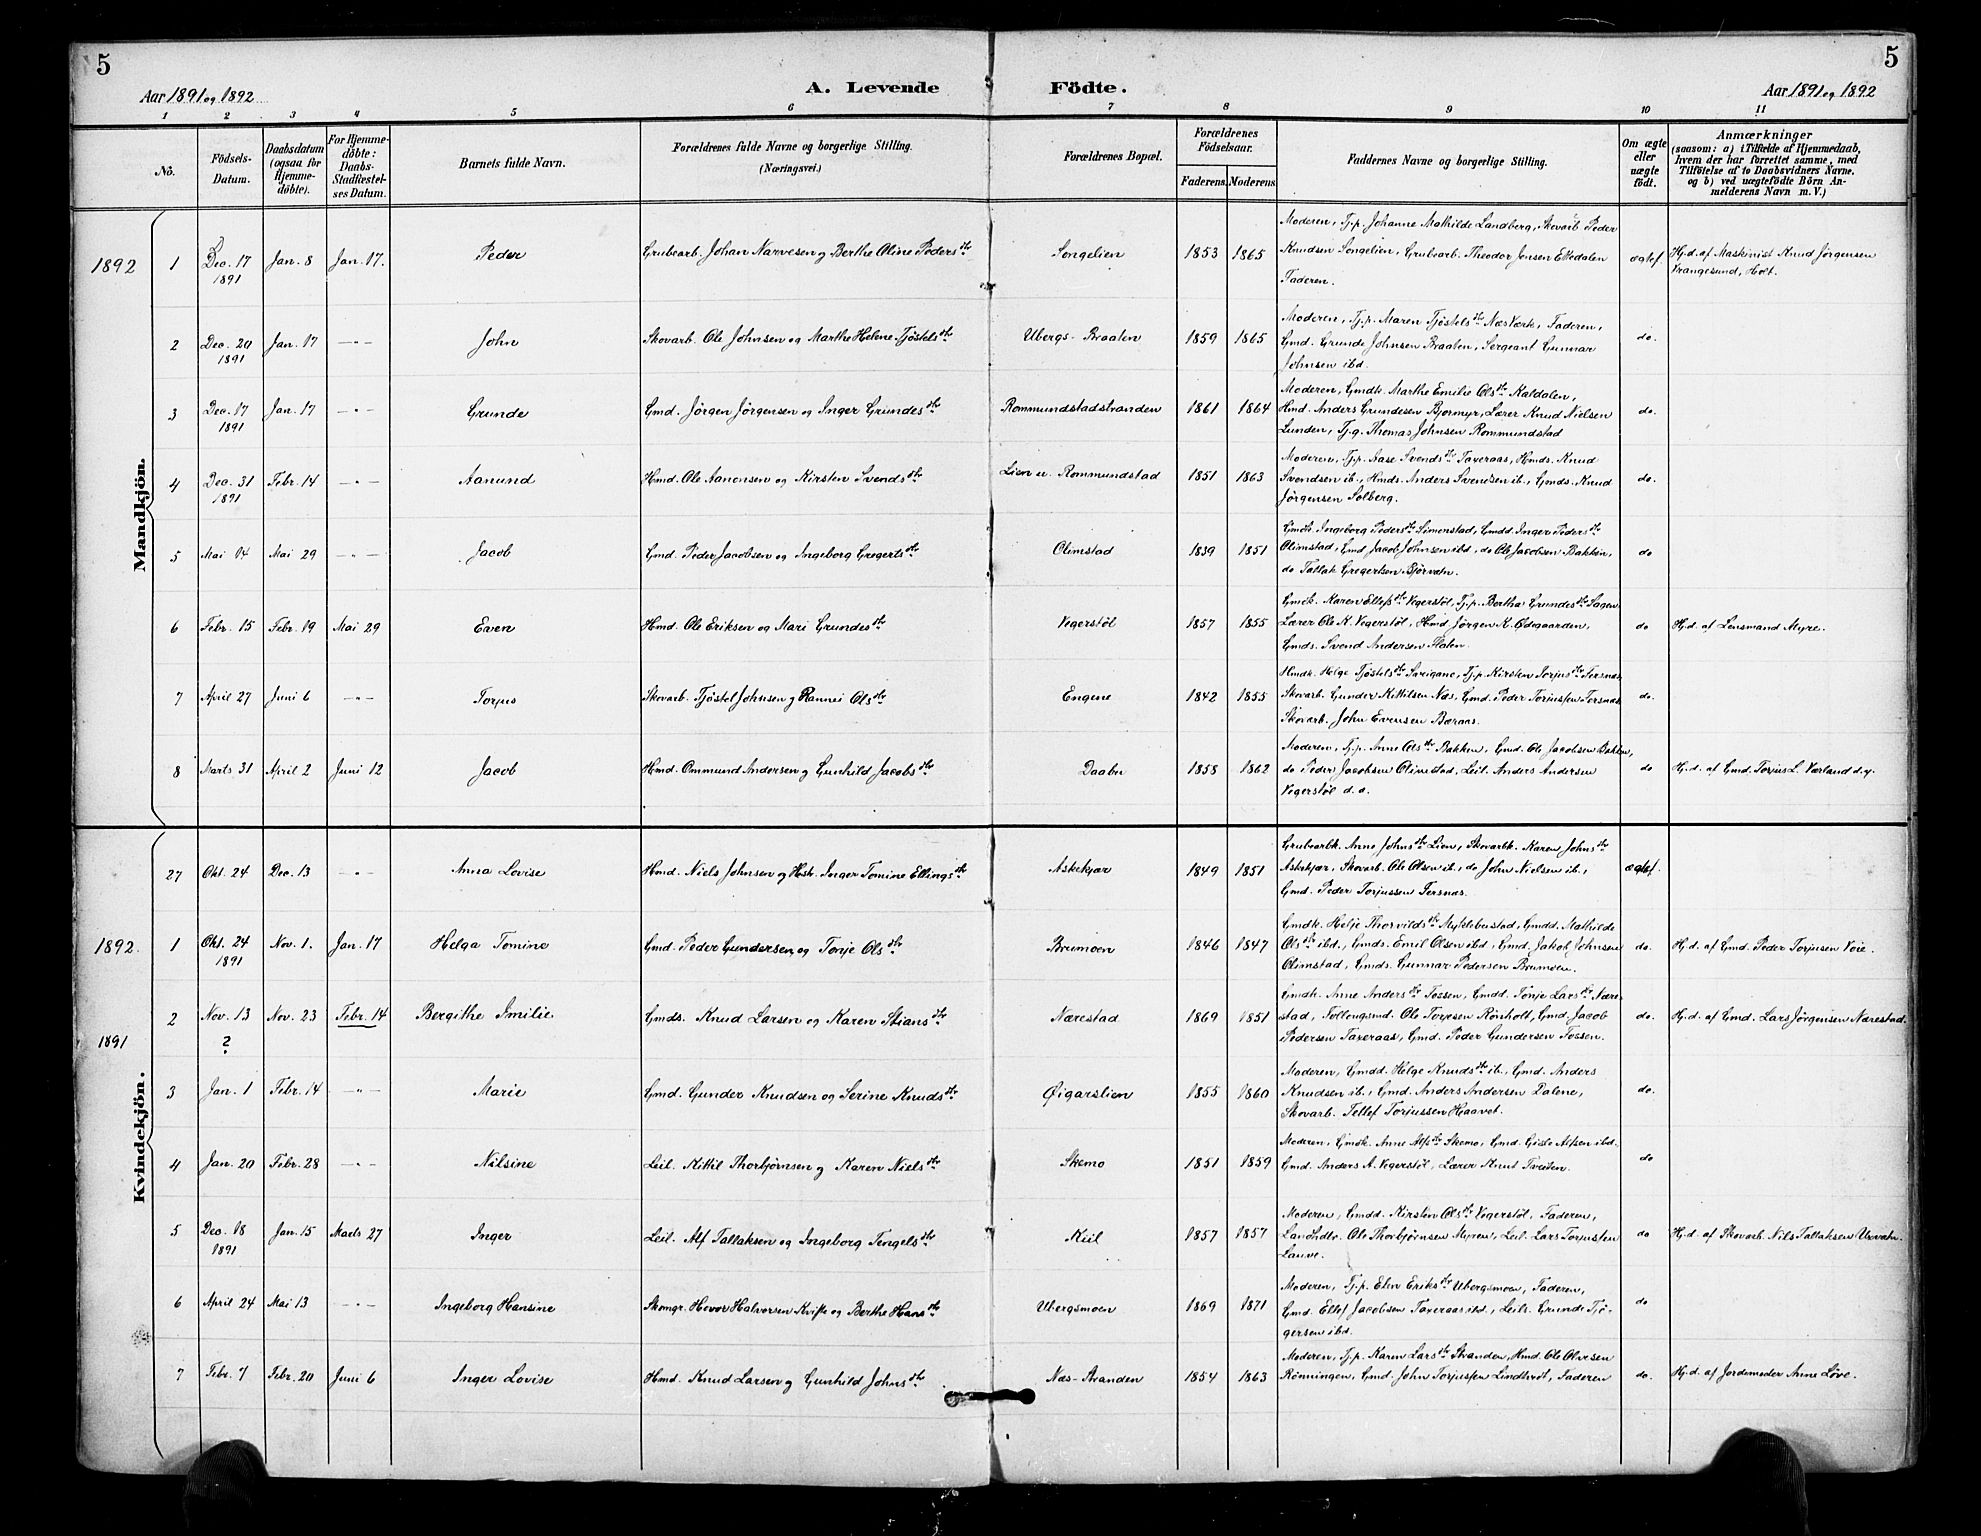 5
5
Aar 1891 og 1892
A. Levende Födte.
Aar 1891 og 1892
1 2 3 4 5 6 7 8 9 10 11
No.
Födsels-Datum.
Daabsdatum (ogsaa for Hjemme-döbte).
For Hjemme-döbte: Daabs-Stadfæstel-ses Datum.
Barnets fulde Navn.
Forældrenes fulde Navne og borgerlige Stilling. (Næringsvei.)
Forældrenes Bopæl.
Forældrenes Födselsaar.
Faderens. Moderens.
Faddernes Navne og borgerlige Stilling.
Om ægte eller uægte födt.
Anmærkninger
(saasom: a) i Tilfælde af Hjemmedaab, hvem der har forrettet samme, med Tilföielse af to Daabsvidners Navne. og b) ved uægtefödte Börn An-melderens Navn m. V.)
Mandkjön.
1892 1 Dec. 17 1891 Jan. 8 Jan. 17. Peder Grubearb. Johan Narvesen og Berthe Oline Pedersdtr Songelien 1853 1865
Moderen, Tj.p. Johanne Mathilde Landberg, Skovarb Peder
Knudsen Songelien, Grubearb. Theodor Jensen Ettedalen
Faderen.
ægtef. Hj.d. af Maskinist Knud Jörgensen
Vrangesund, Holt.
2 Dec. 20 1891 Jan. 17 -"- John Skovarb. Ole Johnsen og Marthe Helene Tjöstelsdtr Ubergs-Braaten 1859 1865
Moderen, Tj.p. Maren Tjöstelsdtr NæsVærk, Faderen,
Gmd. Grunde Johnsen Braaten, Sergeant Gunnar
Johnsen ibd.
do.
3 Dec. 17 1891 Jan. 17 -"- Grunde Gmd. Jörgen Jörgensen og Inger Grundesdtr Rommundstadstranden 1861 1864
Moderen, Gmdk. Marthe Emilie Olsdtr Kaldalen,
Hmd. Anders Grundesen Bjormyr, Lærer Knud Nielsen
Lunden, Tj.g. Thomas Johnsen Rommundstad
do.
4 Dec. 31 1891 Febr. 14 -"- Aanund Hmd. Ole Aanonsen og Kirsten Svendsdtr Lien u. Rommundstad 1851 1863
Moderen, Tj.p. Aase Svendsdtr Taxeraas, Hmds. Knud
Svendsen ib., Hmds. Anders Svendsen ib., Gmds. Knud
Jörgensen Solberg.
do.
5 Mai 14 Mai 29 -"- Jacob Gmd. Peder Jacobsen og Ingeborg Gregertsdtr Olimstad 1839 1851
Gmdk. Ingeborg Pedersdtr Simonstad, Gmdd. Inger Pedersdtr
Olimstad, Gmd. Jacob Johnsen ibd., do Ole Jacobsen Bakken,
do Tallak Gregertsen Björvatn.
do
6 Febr. 15 Febr. 19 Mai 29 Even Hmd. Ole Eriksen og Mari Grundesdtr Vegerstöl 1857 1855
Gmdk. Karen Ellefsdtr Vegerstöl, Tj.p. Berthe Grundesdtr Sagen
Lærer Ole K. Vegerstöl, Hmd Jörgen K. Ödegaarden,
Gmds. Svend Andersen Flaten.
do Hj.d. af Lensmand Myre.
7 April 27 Juni 6 -"- Torjus Skovarb. Tjöstel Johnsen og Rannei Olsdtr Engene 1842 1855
Hmdk. Helge Tjöstelsdtr Sveigane, Tj.p. Kirsten Torjusdtr Tersnæs
Skovarb. Gunder Kittilsen Næs, Gmd. Peder Torjussen Torsnæs
Skovarb. John Evensen Beraas.
do.
8 Marts 31 April 2 Juni 12 Jacob Hmd. Ommund Andersen og Gunhild Jacobsdtr Daabu 1858 1862
Moderen, Tj.p. Anne Olsdtr Bakken, Gmd. Ole Jacobsen Bakken,
do Peder Jacobsen Olimstad, Leil. Anders Andersen
Vegerstöl d. æ.
do Hj.d. af Gmd. Torjus L. Værland d.y.
Kvindekjön.
27 Okt. 24 Dec. 13 -"- Anna Lovise Hmd. Niels Johnsen og Hstr. Inger Tomine Ellingsdtr Askekjær 1849 1851
Grubearbk. Anne Johnsdtr Lien, Skovarbk. Karen Johnsdtr
Askekjær, Skovarb. Ole Olsen ib., do John Nielsen ib.,
Gmd. Peder Torjussen Tersnæs.
ægtef.
1892. 1 Okt. 24 1891 Nov. 1. Jan. 17 Helga Tomine Gmd. Peder Gundersen og Tonje Olsdtr Brumoen 1846 1847
Gmdk. Helje Thorvildsdtr Myklebustad, Gmdd. Mathilde
Olsdtr ibd., Gmds. Emil Olsen ibd, Gmd. Jakob Johnsen
Olimstad, Gmds. Gunnar Pedersen Brumoen.
do. Hj.d. af Gmd. Peder Torjusen Voie.
1891 2 Nov. 13 ? Nov. 23 Febr. 14 Bergithe Emilie Gmds. Knud Larsen og Karen Stiansdtr Nærestad 1869 1851
Gmdk. Anne Andersdtr Fossen, Gmdd. Tonje Larsdtr Næres-
stad, Follougsmd. Ole Torjesen Rönholt, Gmd. Jacob
Pedersen Taxeraas, Gmd. Peder Gundersen Fossen.
do. Hj.d. af Gmd. Lars Jörgensen Nærestad.
3 Jan. 1 Febr. 14 -"- Marie Gmd. Gunder Knudsen og Serine Knudsdtr Øigarslien 1855 1860
Moderen, Gmdd. Helge Knudsdtr ib., Gmd. Anders
Knudsen ib., Gmd. Anders Andersen Dalene,
Skovarb. Tellef Torjussen Haavet.
do.
4 Jan. 20 Febr. 28 -"- Nilsine Leil. Kittil Thorbjörnsen og Karen Nielsdtr Skemo 1851 1859
Moderen, Gmdk. Anne Alfsdtr Skemo, Gmd. Gisle Alfsen ibd.
Gmd. Anders A. Vegerstöl, Lærer Knut Tveiten.
do
5 Dec. 18 1891 Jan. 15 Marts 27 Inger Leil. Alf Tallaksen og Ingeborg Tengelsdtr Kiil 1857 1857
Moderen, Gmdd. Kirsten Olsdtr Vegerstöl, Faderen,
Landhdlr. Ole Thorbjörnsen Myren, Leil. Lars Torjussen
Lauve.
do Hj.d. af Skovarb. Nils Tallaksen Urvatn.
6 April 24 Mai 13 -"- Ingeborg Hansine Skomgr. Hovor Halvorsen Kvifte og Berthe Hansdtr Ubergsmoen 1869 1871
Moderen, Tj.p. Elen Eriksdtr Ubergsmoen, Faderen,
Gmd. Ellef Jacobsen Taxeraas ibd., Leil. Grunde Tjö-
gersen ibd.
do
7 Febr. 7 Febr. 20 Juni 6 Inger Lovise Hmd. Knud Larsen og Gunhild Johnsdtr Næs-Stranden 1854 1863
Moderen, Tj.p. Karen Larsdtr Stranden, Hmd. Ole Olvesen
Rönningen, Gmd. John Torjussen Lindtveit, Faderen
do. Hj.d. af Jordemoder Anne Löve.